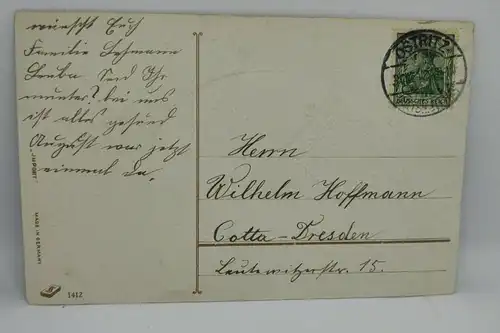 wünscht Euch
Familie Lehmann
Leuba. Seid Ihr
munter? bei uns
ist alles gesund
August war jetzt
einmal da.
OSTRITZ
DEUTSCHES REICH
Herrn
Wilhelm Hoffmann
Cotta-Dresden
Leutewitzerstr. 15.
"IMPORT"
MADE IN GERMANY
1412